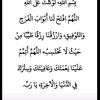 بِسْمِ اللهِ، تَوَكَّلْتُ عَلَى اللهِ
اللَّهُمَّ افْتَحْ لَنَا أَبْوَابَ الْفَرَجِ
وَالتَّوْفِيقِ، وَارْزُقْنَا رِزْقًا طَيِّبًا مِنْ
حَيْثُ لَا نَحْتَسِبُ، اللَّهُمَّ أَتْمِمْ
عَلَيْنَا نِعْمَتَكَ وَعَافِيَتَكَ وَسِتْرَكَ
فِي الدُّنْيَا وَالْآخِرَةِ يَا رَبُّ.